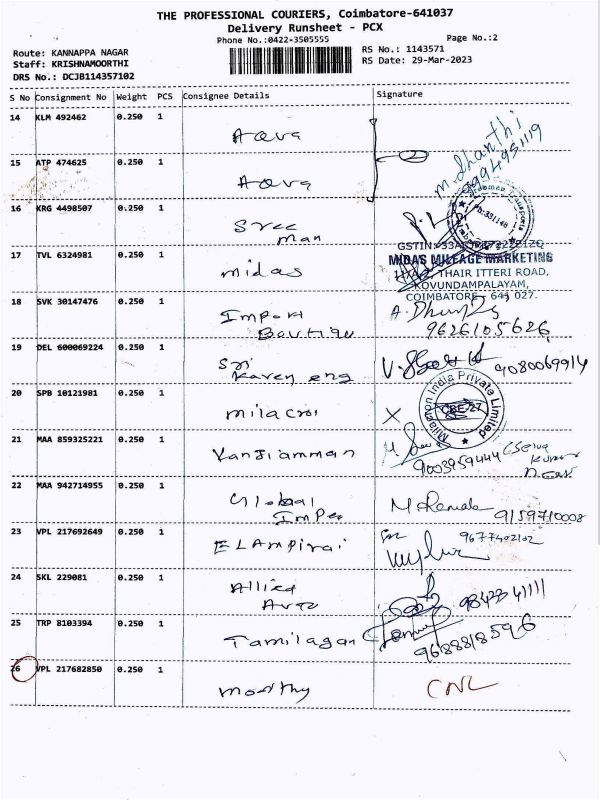 THE PROFESSIONAL COURIERS, Coimbatore-641037
Delivery Runsheet - PCX
Phone No.:0422-3505555
Page No.:2
Route: KANNAPPA NAGAR
Staff: KRISHNAMOORTHI
DRS No.: DCJB114357102
RS No.: 1143571
RS Date: 29-Mar-2023
S No Consignment No Weight PCS Consignee Details Signature
14 KLM 492462 0.250 1
Aqua
15 ATP 474625 0.250 1
Aqua
M. Dhanthi
16 KRG 4498507 0.250 1
Sree
man
17 TVL 6324981 0.250 1
midas
MIDAS MILEAGE MARKETING
THAIR ITTERI ROAD,
KOVUNDAMPALAYAM,
COIMBATORE - 641 027.
18 SVK 30147476 0.250 1
Import
9626105626
19 DEL 600069224 0.250 1
Sri
eng
9080069914
20 SPB 10121981 0.250 1
milacron
Milacron India Private Limited
CBE-27
21 MAA 859325221 0.250 1
Vanjiamman
9003959444
22 MAA 942714955 0.250 1
Global
Impex
9159710008
23 VPL 217692649 0.250 1
ELAmpirai
9677402102
24 SKL 229081 0.250 1
Allied
Auto
9842341111
25 TRP 8103394 0.250 1
Tamilagan
9688818596
26 VPL 217682850 0.250 1
moorthy
CNL